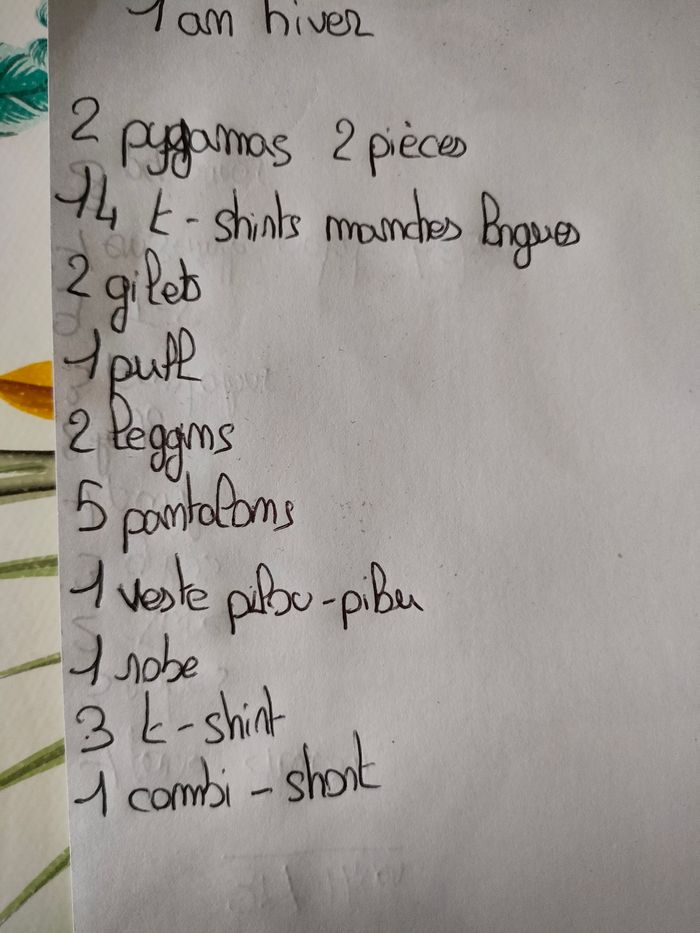 1 an hiver
2 pygamas 2 pièces
14 t-shirts manches longues
2 gilets
1 pull
2 leggins
5 pantalons
1 veste pilou-pilou
1 robe
3 t-shirt
1 combi-short